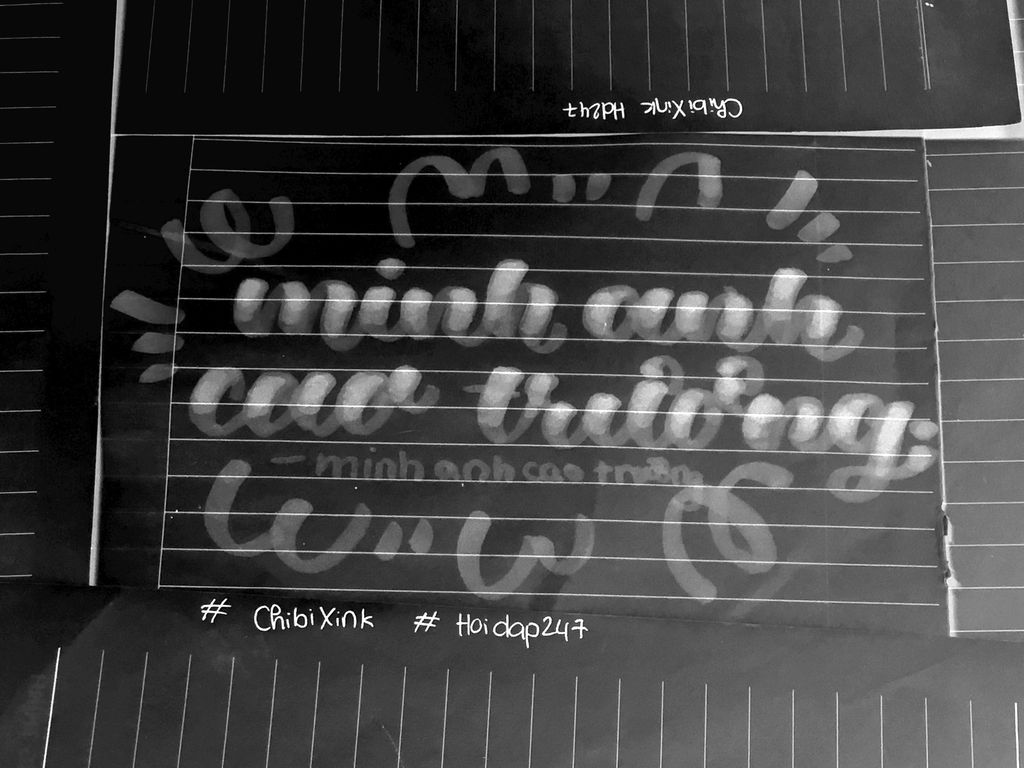 ChibiXink Hd247
minh anh
cao trường
- minh anh cao trường
# ChibiXink # Hoidap247